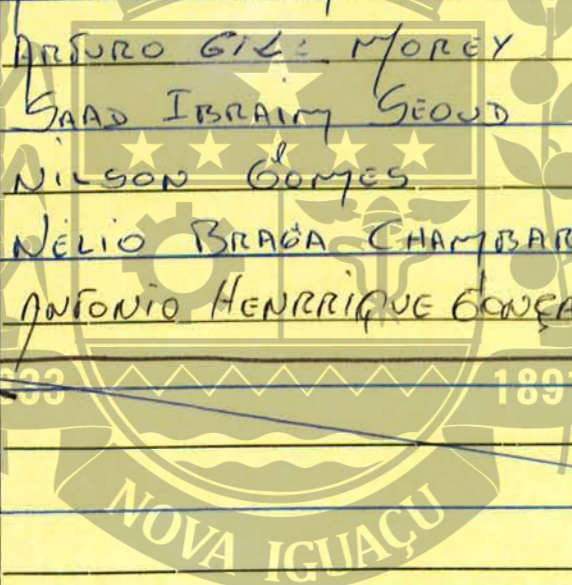 ARTURO GIL MOREY
SAAD IBRAIM SEOUD
NILSON GOMES
NÉLIO BRAGA CHAMBAR
ANTONIO HENRRIQUE GONÇA
189
NOVA IGUAÇU